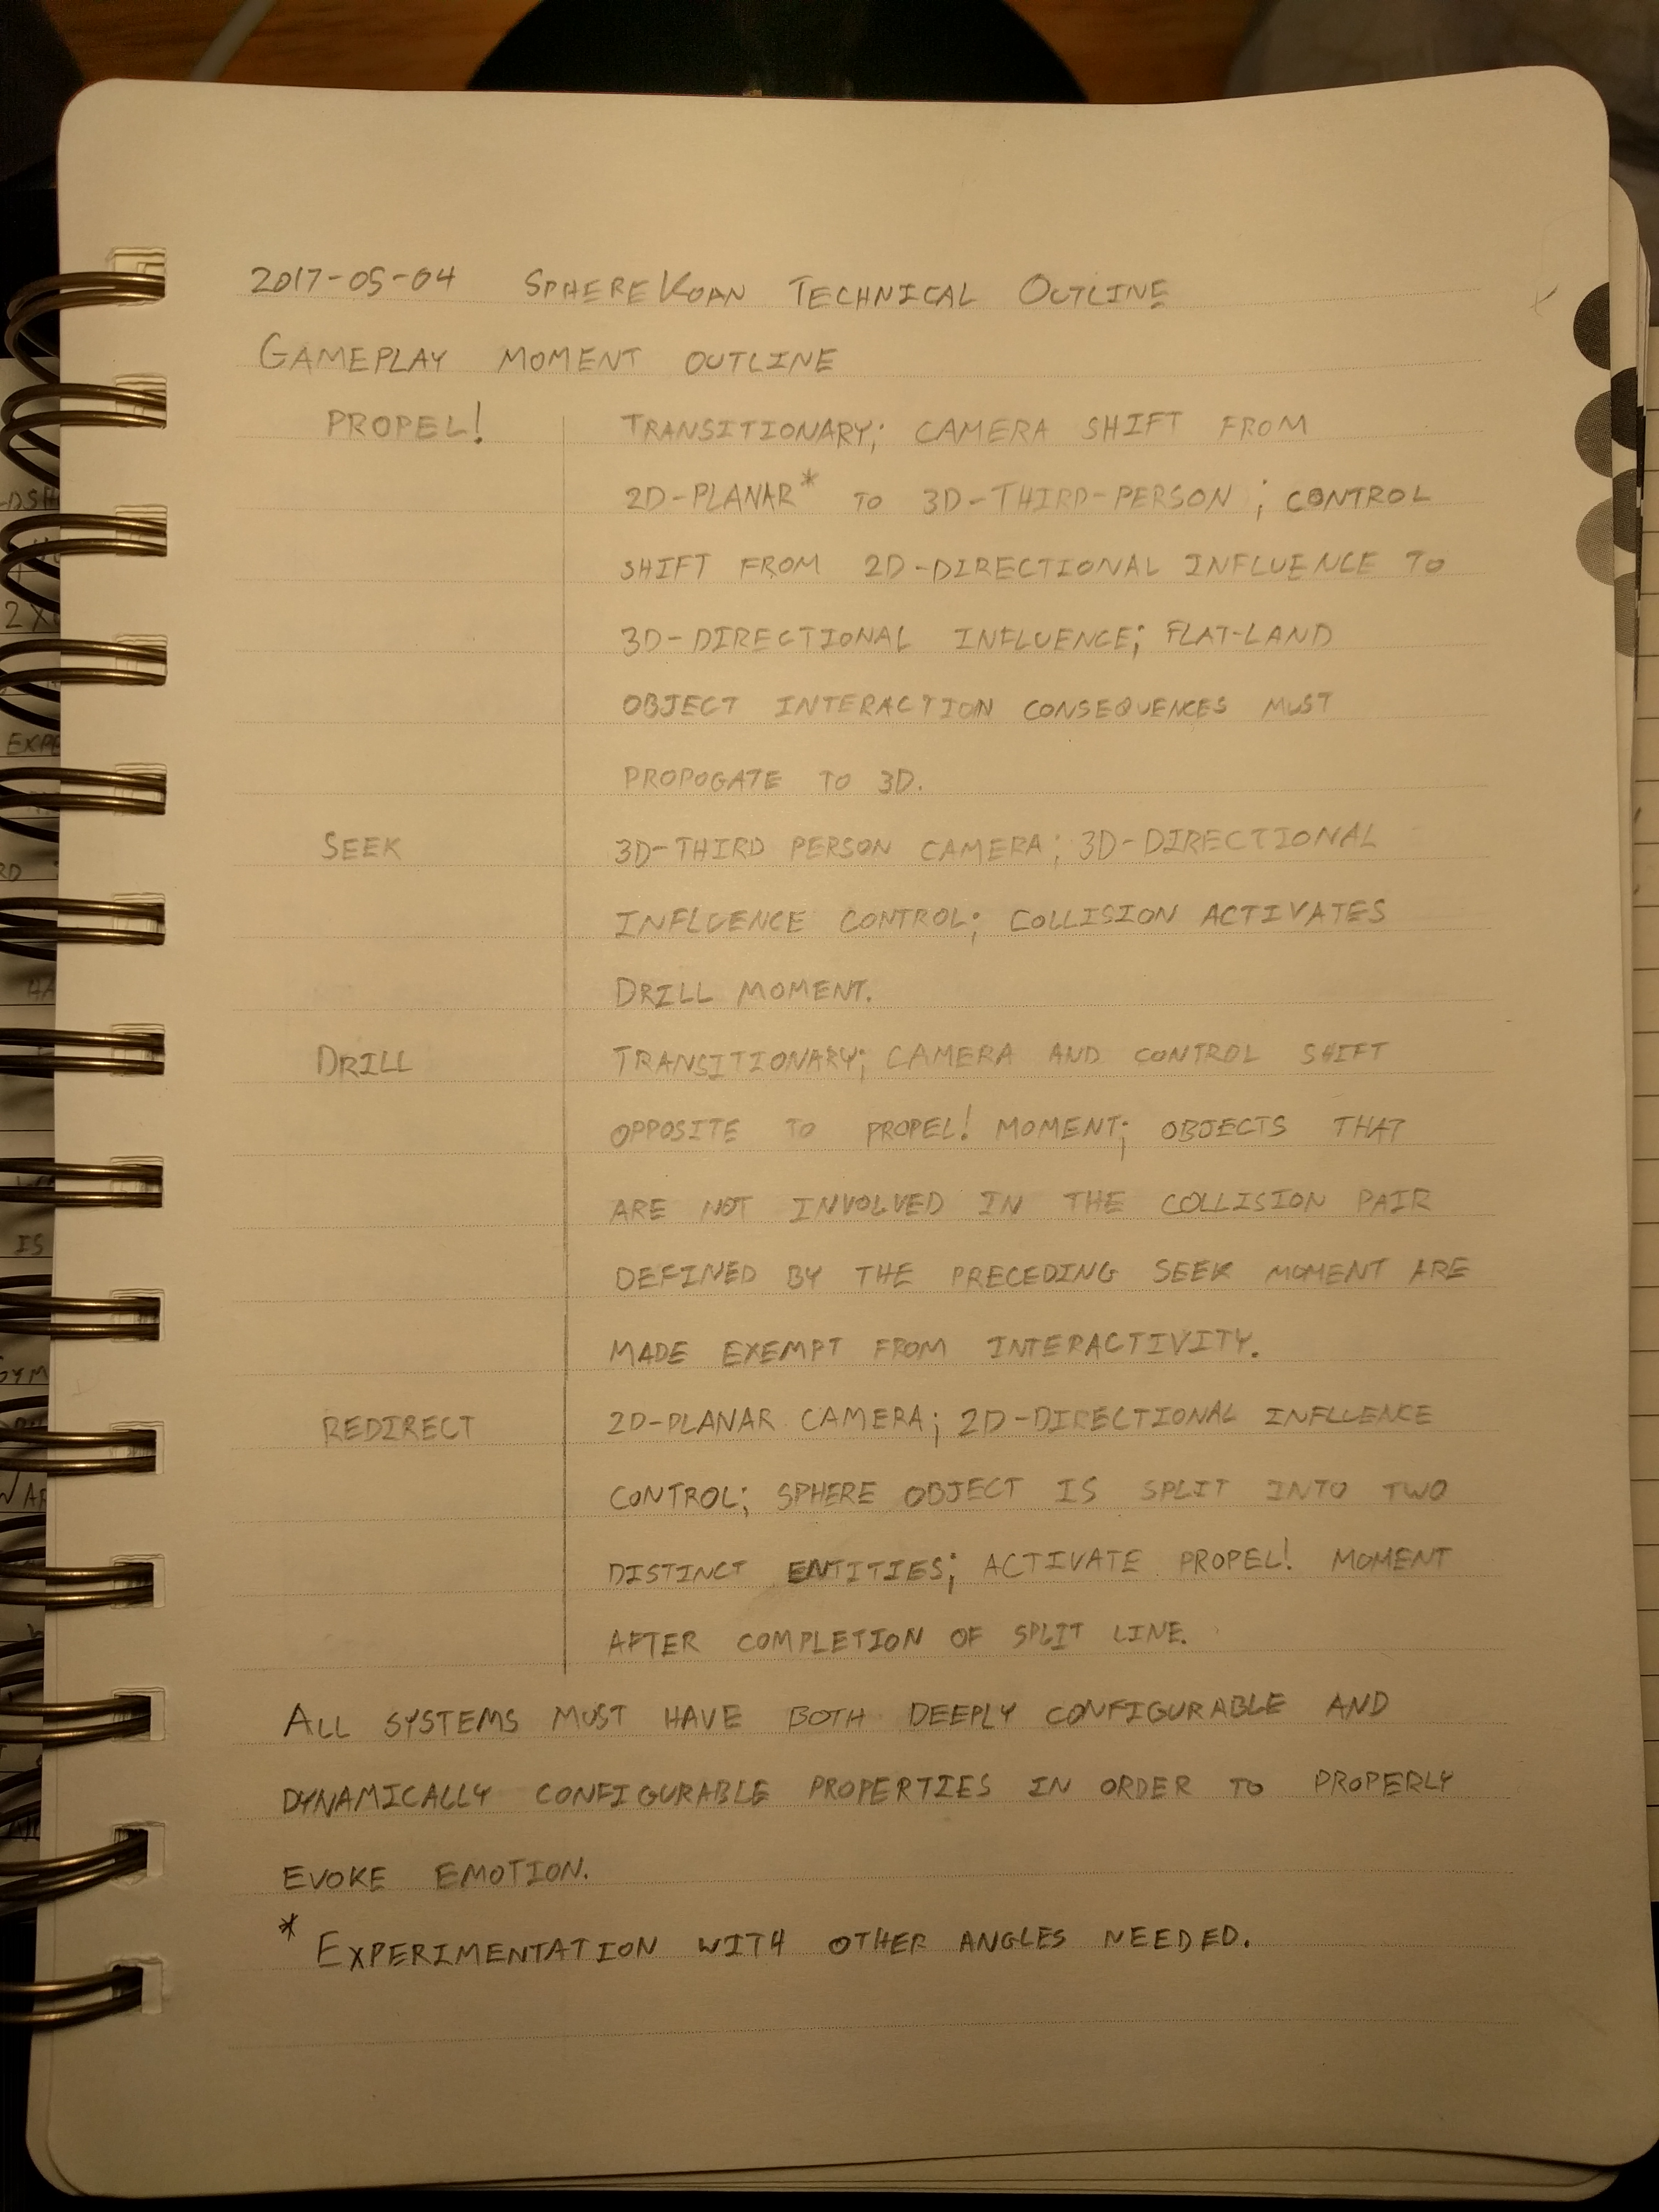 2017-05-04 SPHEREKOAN TECHNICAL OUTLINE
GAMEPLAY MOMENT OUTLINE
PROPEL! TRANSITIONARY; CAMERA SHIFT FROM
2D-PLANAR* TO 3D-THIRD-PERSON; CONTROL
SHIFT FROM 2D-DIRECTIONAL INFLUENCE TO
3D-DIRECTIONAL INFLUENCE; FLAT-LAND
OBJECT INTERACTION CONSEQUENCES MUST
PROPOGATE TO 3D.
SEEK 3D-THIRD PERSON CAMERA; 3D-DIRECTIONAL
INFLUENCE CONTROL; COLLISION ACTIVATES
DRILL MOMENT.
DRILL TRANSITIONARY; CAMERA AND CONTROL SHIFT
OPPOSITE TO PROPEL! MOMENT; OBJECTS THAT
ARE NOT INVOLVED IN THE COLLISION PAIR
DEFINED BY THE PRECEDING SEEK MOMENT ARE
MADE EXEMPT FROM INTERACTIVITY.
REDIRECT 2D-PLANAR CAMERA; 2D-DIRECTIONAL INFLUENCE
CONTROL; SPHERE OBJECT IS SPLIT INTO TWO
DISTINCT ENTITIES; ACTIVATE PROPEL! MOMENT
AFTER COMPLETION OF SPLIT LINE.
ALL SYSTEMS MUST HAVE BOTH DEEPLY CONFIGURABLE AND
DYNAMICALLY CONFIGURABLE PROPERTIES IN ORDER TO PROPERLY
EVOKE EMOTION.
* EXPERIMENTATION WITH OTHER ANGLES NEEDED.
2X
EXPE
IS